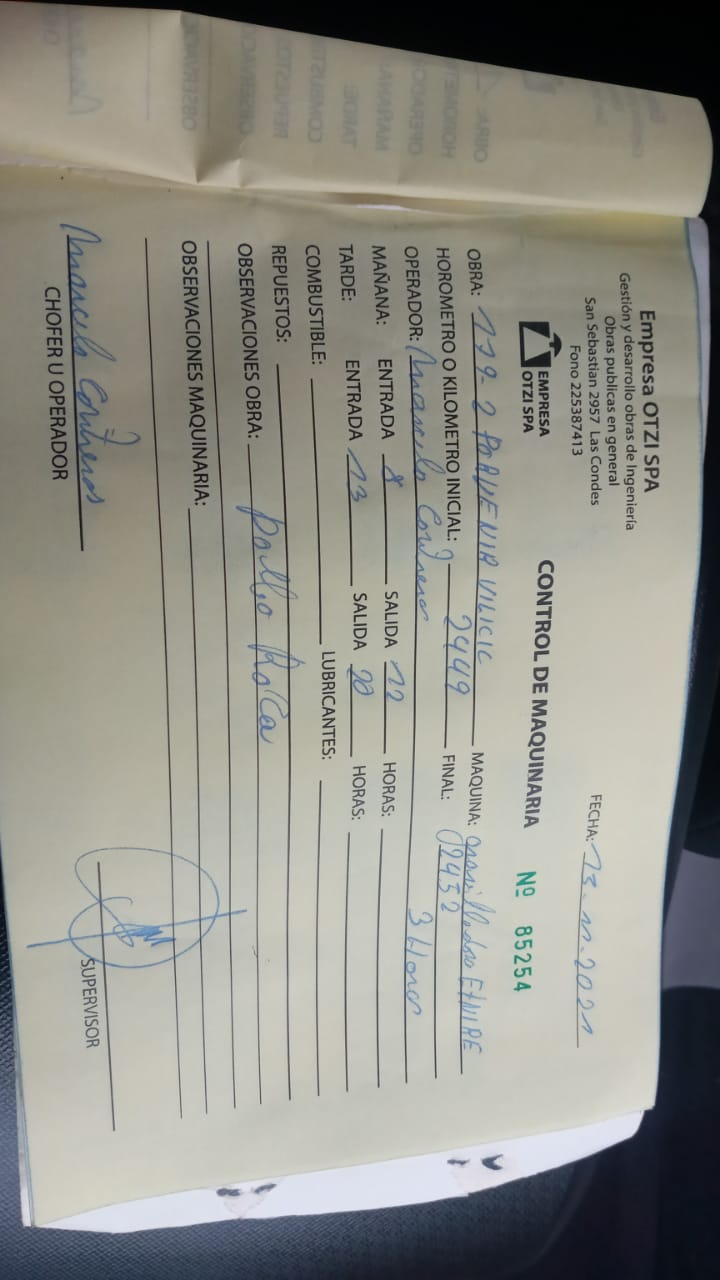 Empresa OTZI SPA
Gestión y desarrollo obras de Ingeniería
Obras publicas en general
San Sebastian 2957 Las Condes
Fono 225387413
FECHA: 13-11-2021
EMPRESA
OTZI SPA
CONTROL DE MAQUINARIA
Nº 85254
OBRA: 179-2 PORVENIR VILICIC MAQUINA: gravilladora ETNIRE
HOROMETRO O KILOMETRO INICIAL: 2449 FINAL: 02452
OPERADOR: Marcelo Contreras 3 Horas
MAÑANA: ENTRADA 8 SALIDA 12 HORAS:
TARDE: ENTRADA 13 SALIDA 20 HORAS:
COMBUSTIBLE: LUBRICANTES:
REPUESTOS:
OBSERVACIONES OBRA: Roca
OBSERVACIONES MAQUINARIA:
Marcelo Contreras
CHOFER U OPERADOR
SUPERVISOR